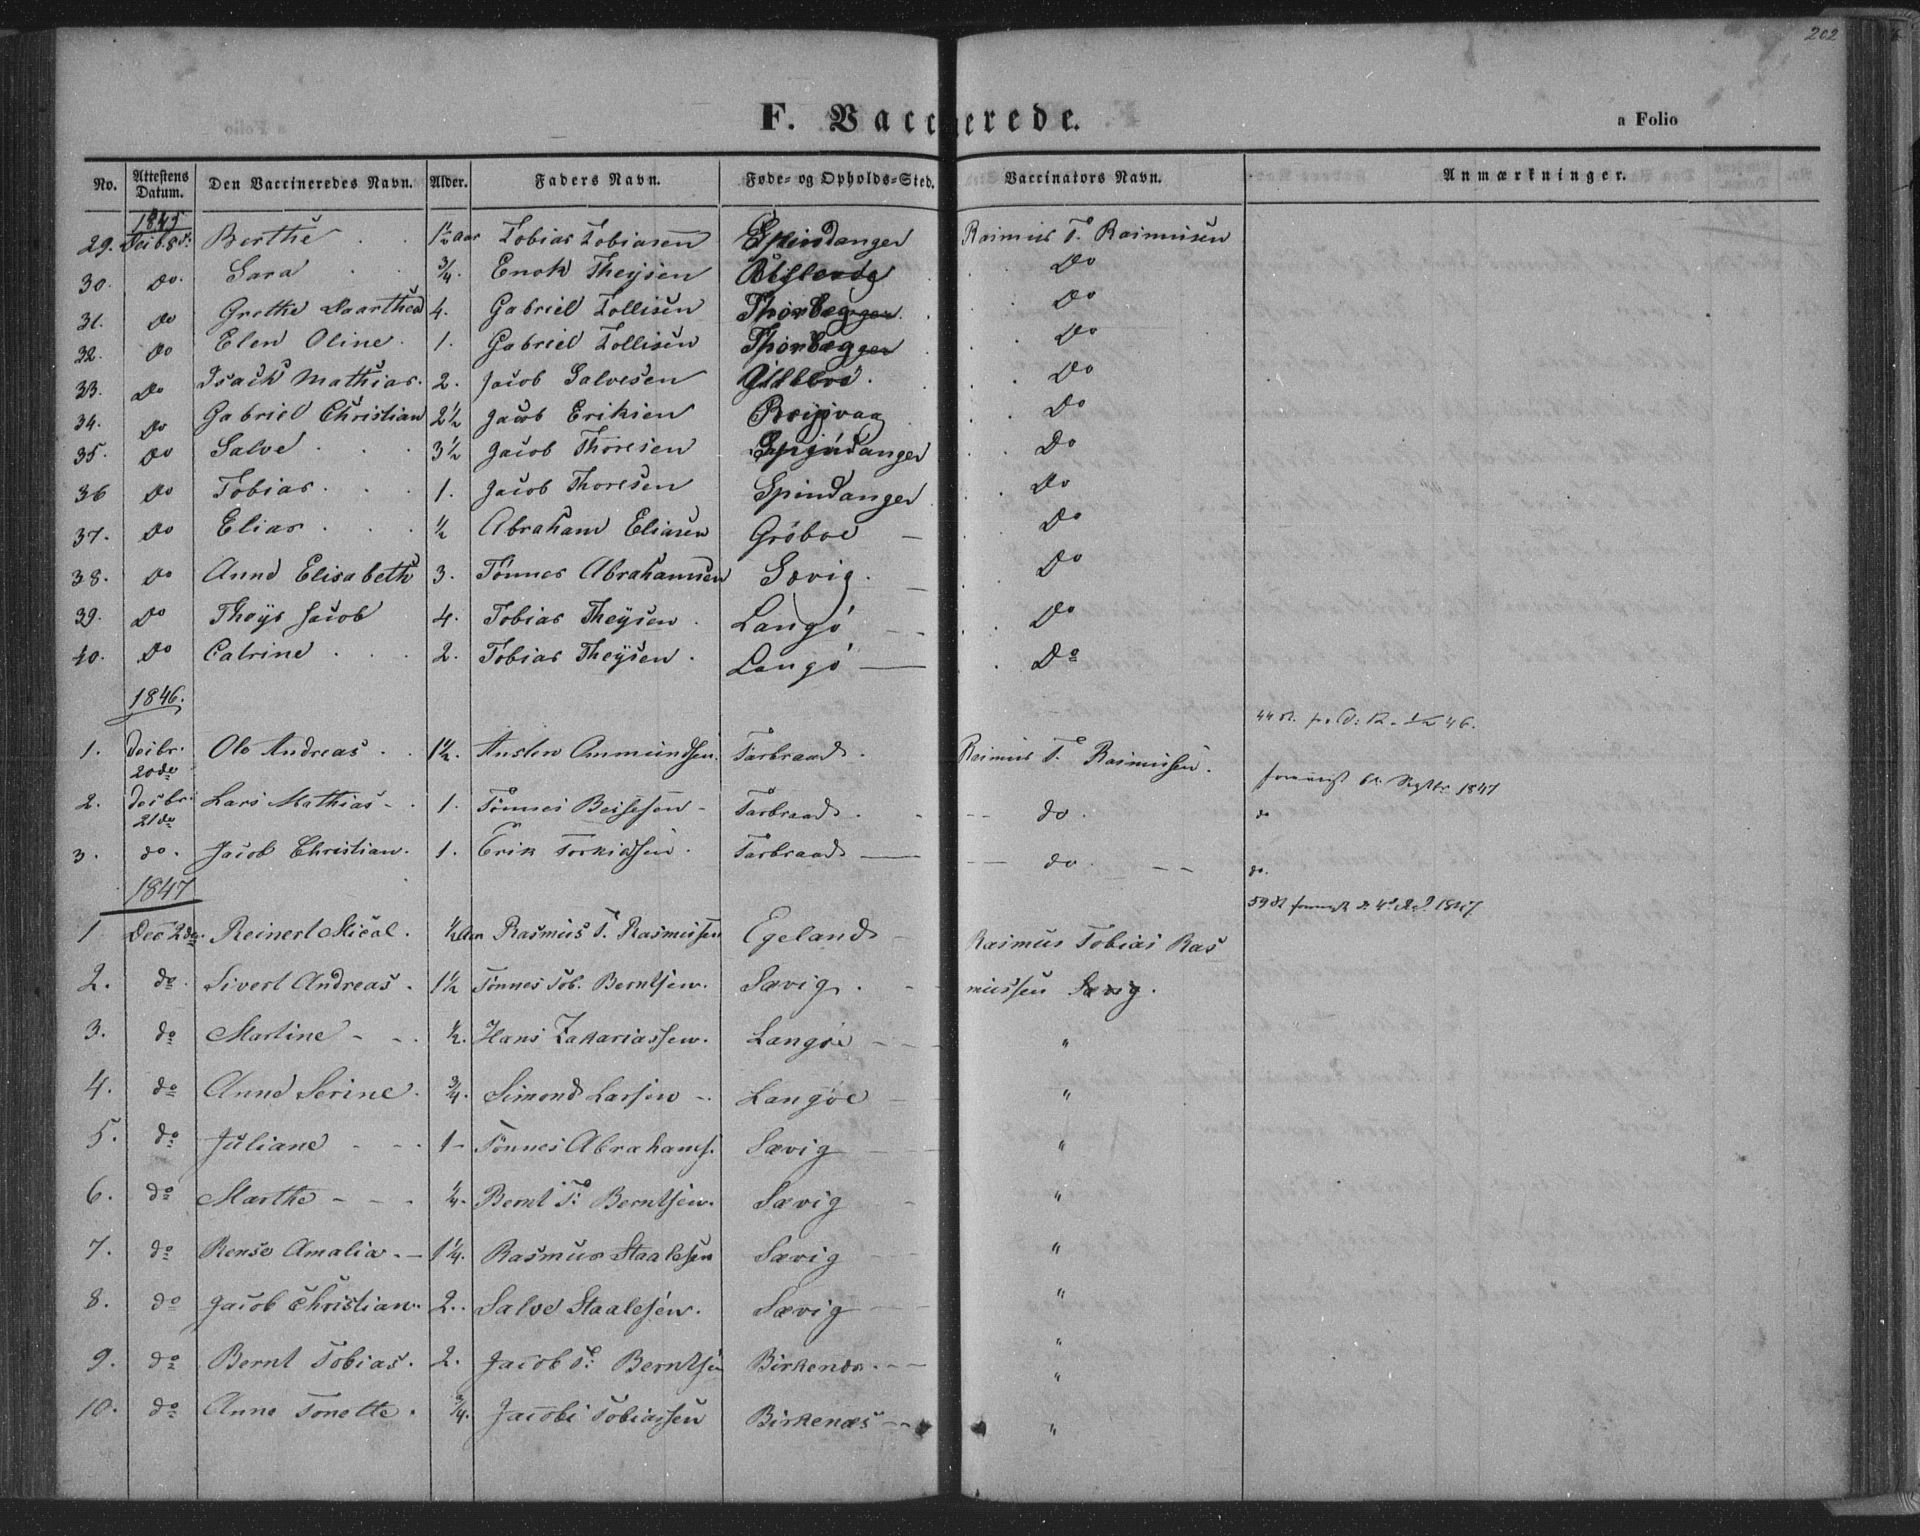 202
F. Vaccinerede.
a Folio
No. Attestens Datum. Den Vaccineredes Navn. Alder. Faders Navn. Føde- og Opholds-Sted. Vaccinators Navn. Anmærkninger.
1845
29. Berthe 1½ Aar Tobias Tobiasen Spindanger Rasmus T. Rasmusen
30. Do. Sara ¾. Enok Theysen Do
31. Do Grethe Daarthea 4. Gabriel Tollisen Do
32. Do Elen Oline. 1. Gabriel Tollisen Do
33. Do Isack Mathias. 2. Jacob Salvesen Do
34. Do Gabriel Christian 2½ Jacob Eriksen Do
35. Do Salve 3½ Jacob Thoresen Spindanger Do
36 Do Tobias. 1. Jacob Thoresen Spindanger Do
37. Do Elias ½ Abraham Eliasen Grøboe Do
38. Do Anne Elisabeth 3. Tønnes Abrahamsen Sævig. Do
39. Do Theys Jacob 4. Tobias Theysen. Langø Do
40. Do Catrine 2. Tobias Theysen. Langø Do
1846.
1. Decbr. 20de Ole Andreas. 1½. Austen Anmundsen. Farbraad. Rasmus T. Rasmusen.
2. Decbr. 21de Lars Mathias 1. Tønnes Farbraad. do. do
3. do. Jacob Christian. 1. Erik Torkildsen. Farbraad do do.
1847
1 Dec 2den. Reinert Mical. ½ Aar Rasmus T. Rasmussen Egeland Rasmus Tobias Ras
2. do. Sivert Andreas. 1½ Tønnes Tob. Berntsen. Sævig. mussen Sævig.
3. do Martine ½. Hans Zakariassen. Langøe "
4. do Anne Serine. ¾. Simond Larsen Langøe "
5. do Juliane 1 Tønnes Abrahams. Sævig "
6. do Marthe ¼. Bernt T. Berntsen. Sævig "
7. do Rense Amalia. 1¼. Rasmus Staalesen Sævig "
8. do Jacob Christian. 2. Salve Staalesen. Sævig "
9. do Bernt Tobias. 2. Jacob T. Berntsen Birkenæs. "
10. do Anne Tonette. ¾. Jacob Tobiassen Birkenæs "